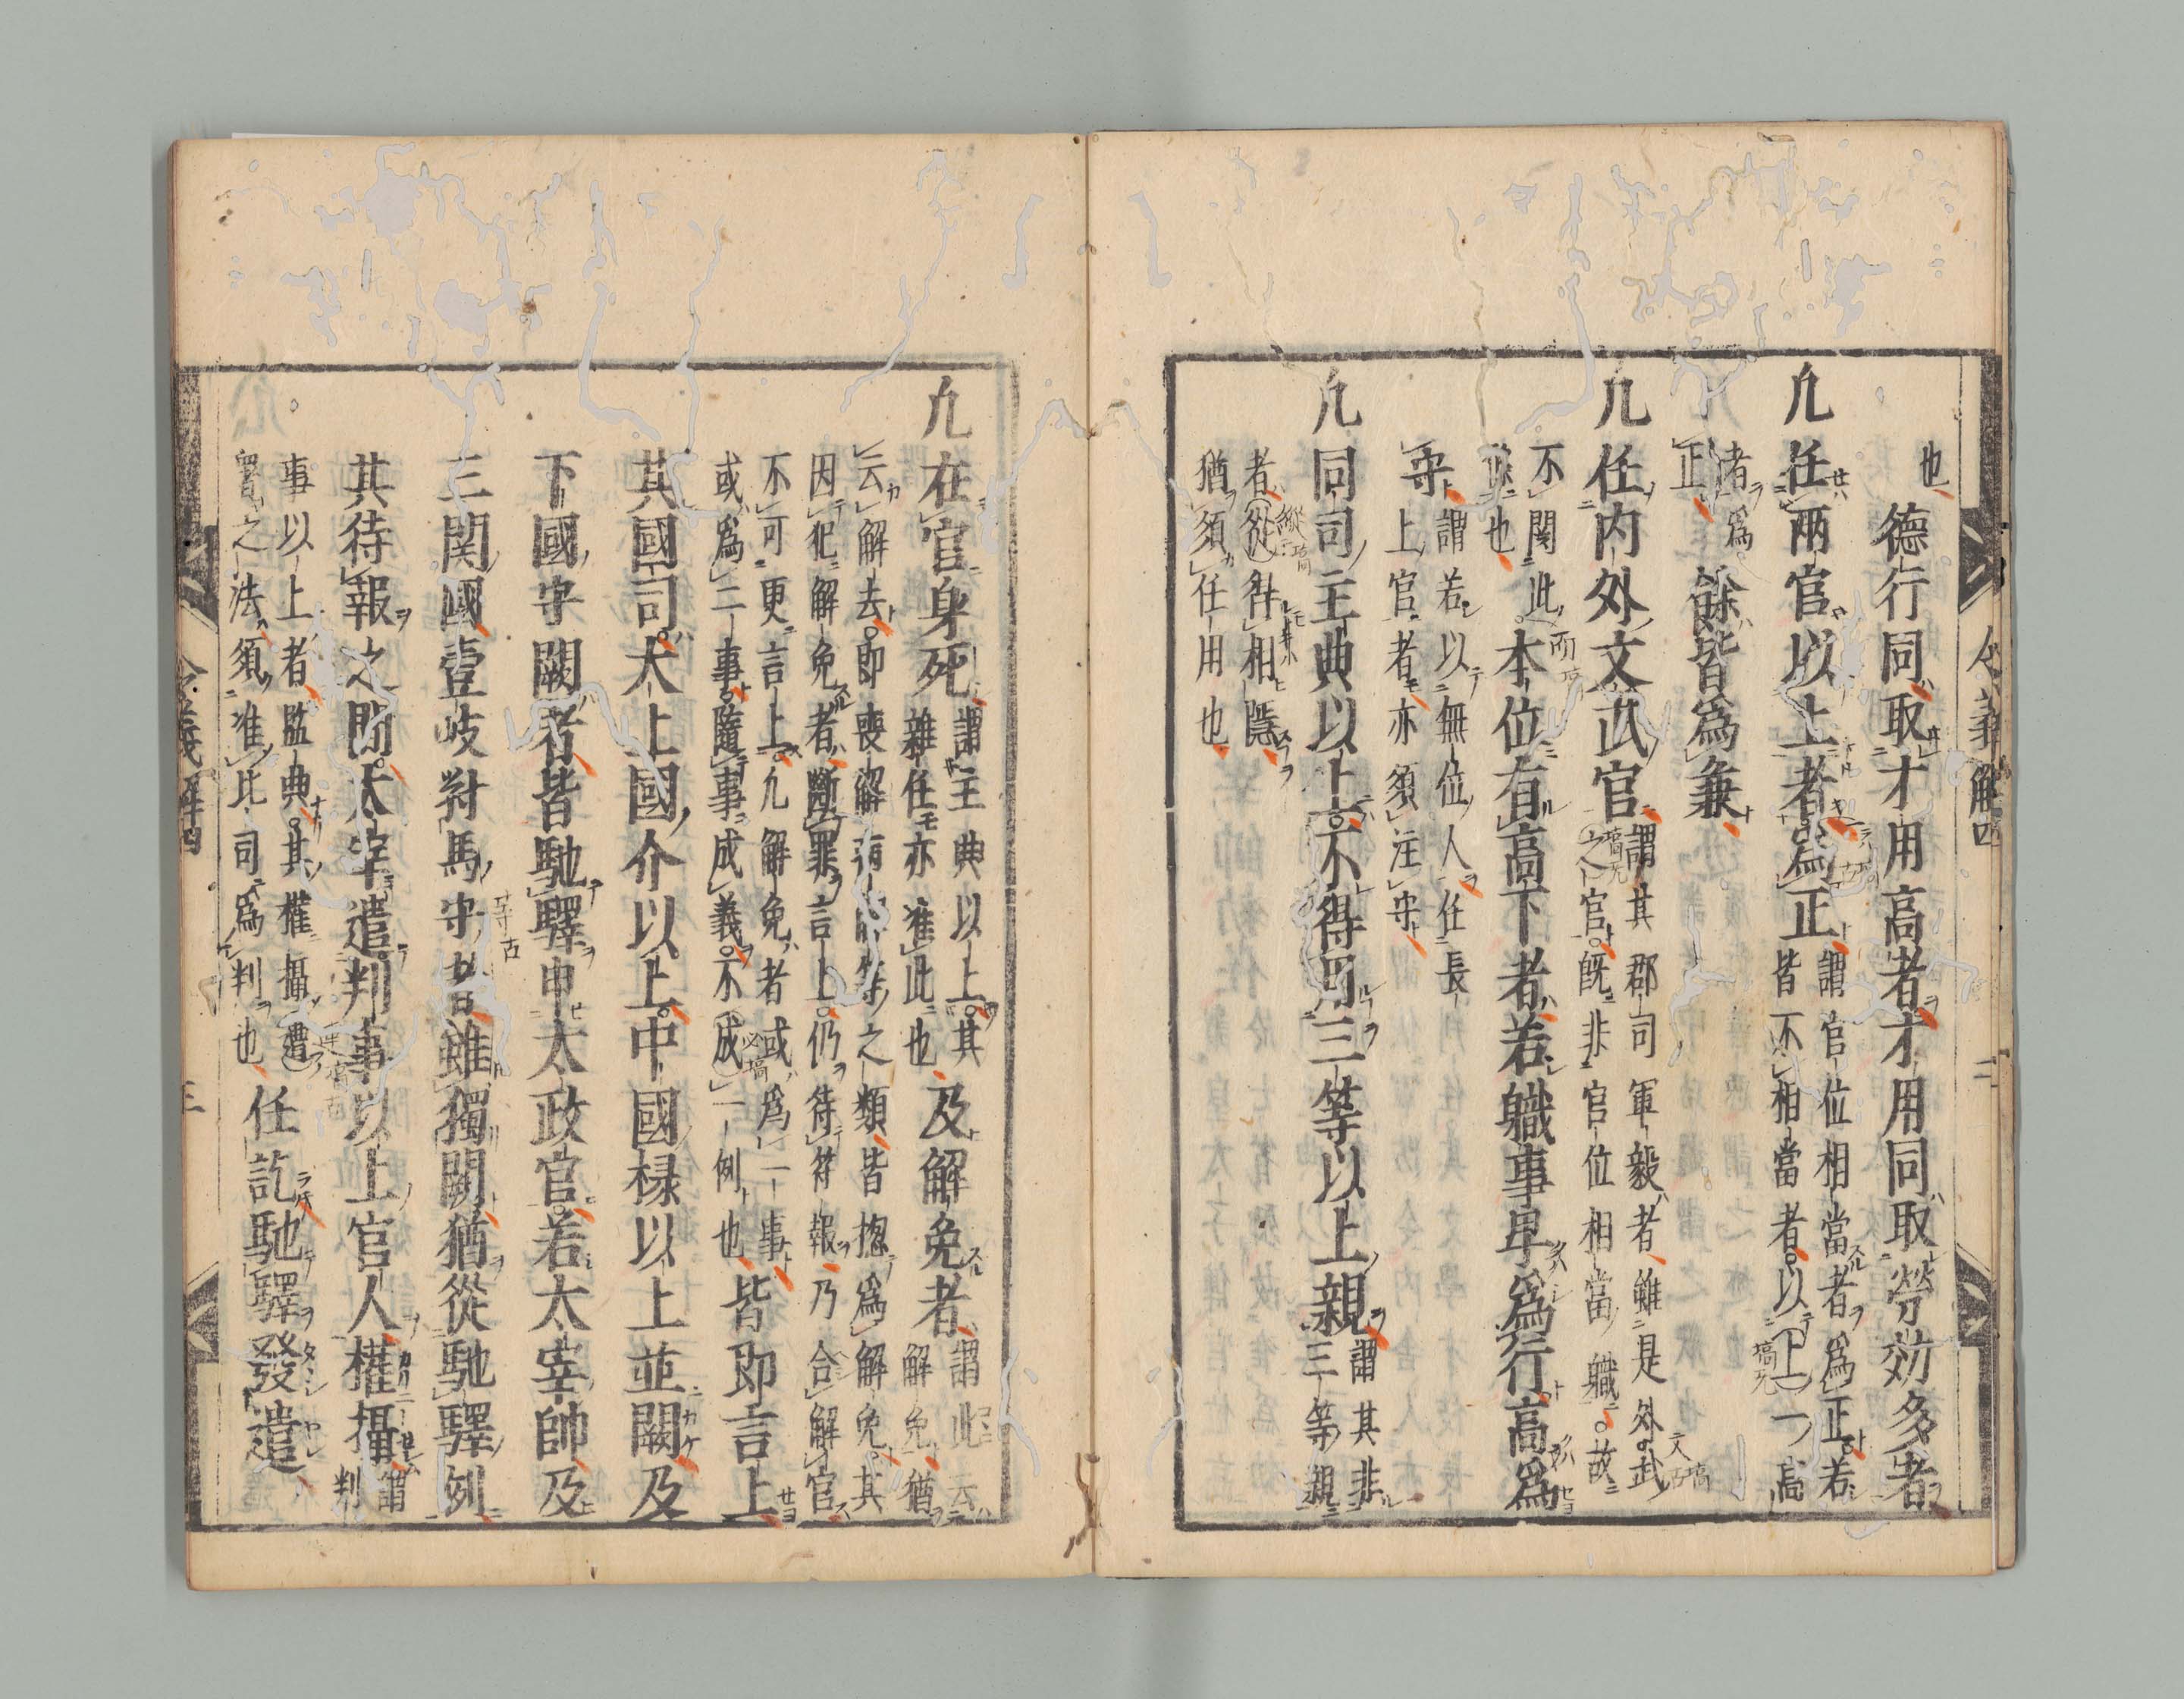 令義解四
二
也
德行同取才用高者才用同取勞効多者
凢任兩官以上者爲正
謂官位相當者爲正若
皆不相當者以上一高
者爲
正
餘皆爲兼
凢任内外文武官
謂其郡司軍毅者雖是外武
之官既非官位相當軄故
不関此
條也
本位有高下者若軄事卑爲行高爲
守
謂若以無位人任長
上官者亦須注守
凢同司主典以上不得用三等以上親
謂其非
三等親
者從許相隱
猶須任用也
凢在官身死
謂主典以上其
雜任亦准此也
及解免者
謂此云
解免猶
云解去即喪解病解等之類皆揔爲解免其
因犯解免者斷罪言上仍待符報乃合解官
不可更言上凢解免者或爲一事
或爲二事隨事成義不成一例也
皆即言上
其國司大上國介以上中國椽以上並闕及
下國守闕者皆馳驛申太政官若太宰帥及
三関國壹岐對馬守者雖獨闕猶從馳驛例
其待報之間太宰遣判事以上官人權攝
謂
判
事以上者監典其權攝遭
署之法須准比司爲判也
任訖馳驛發遣
令義解四
三